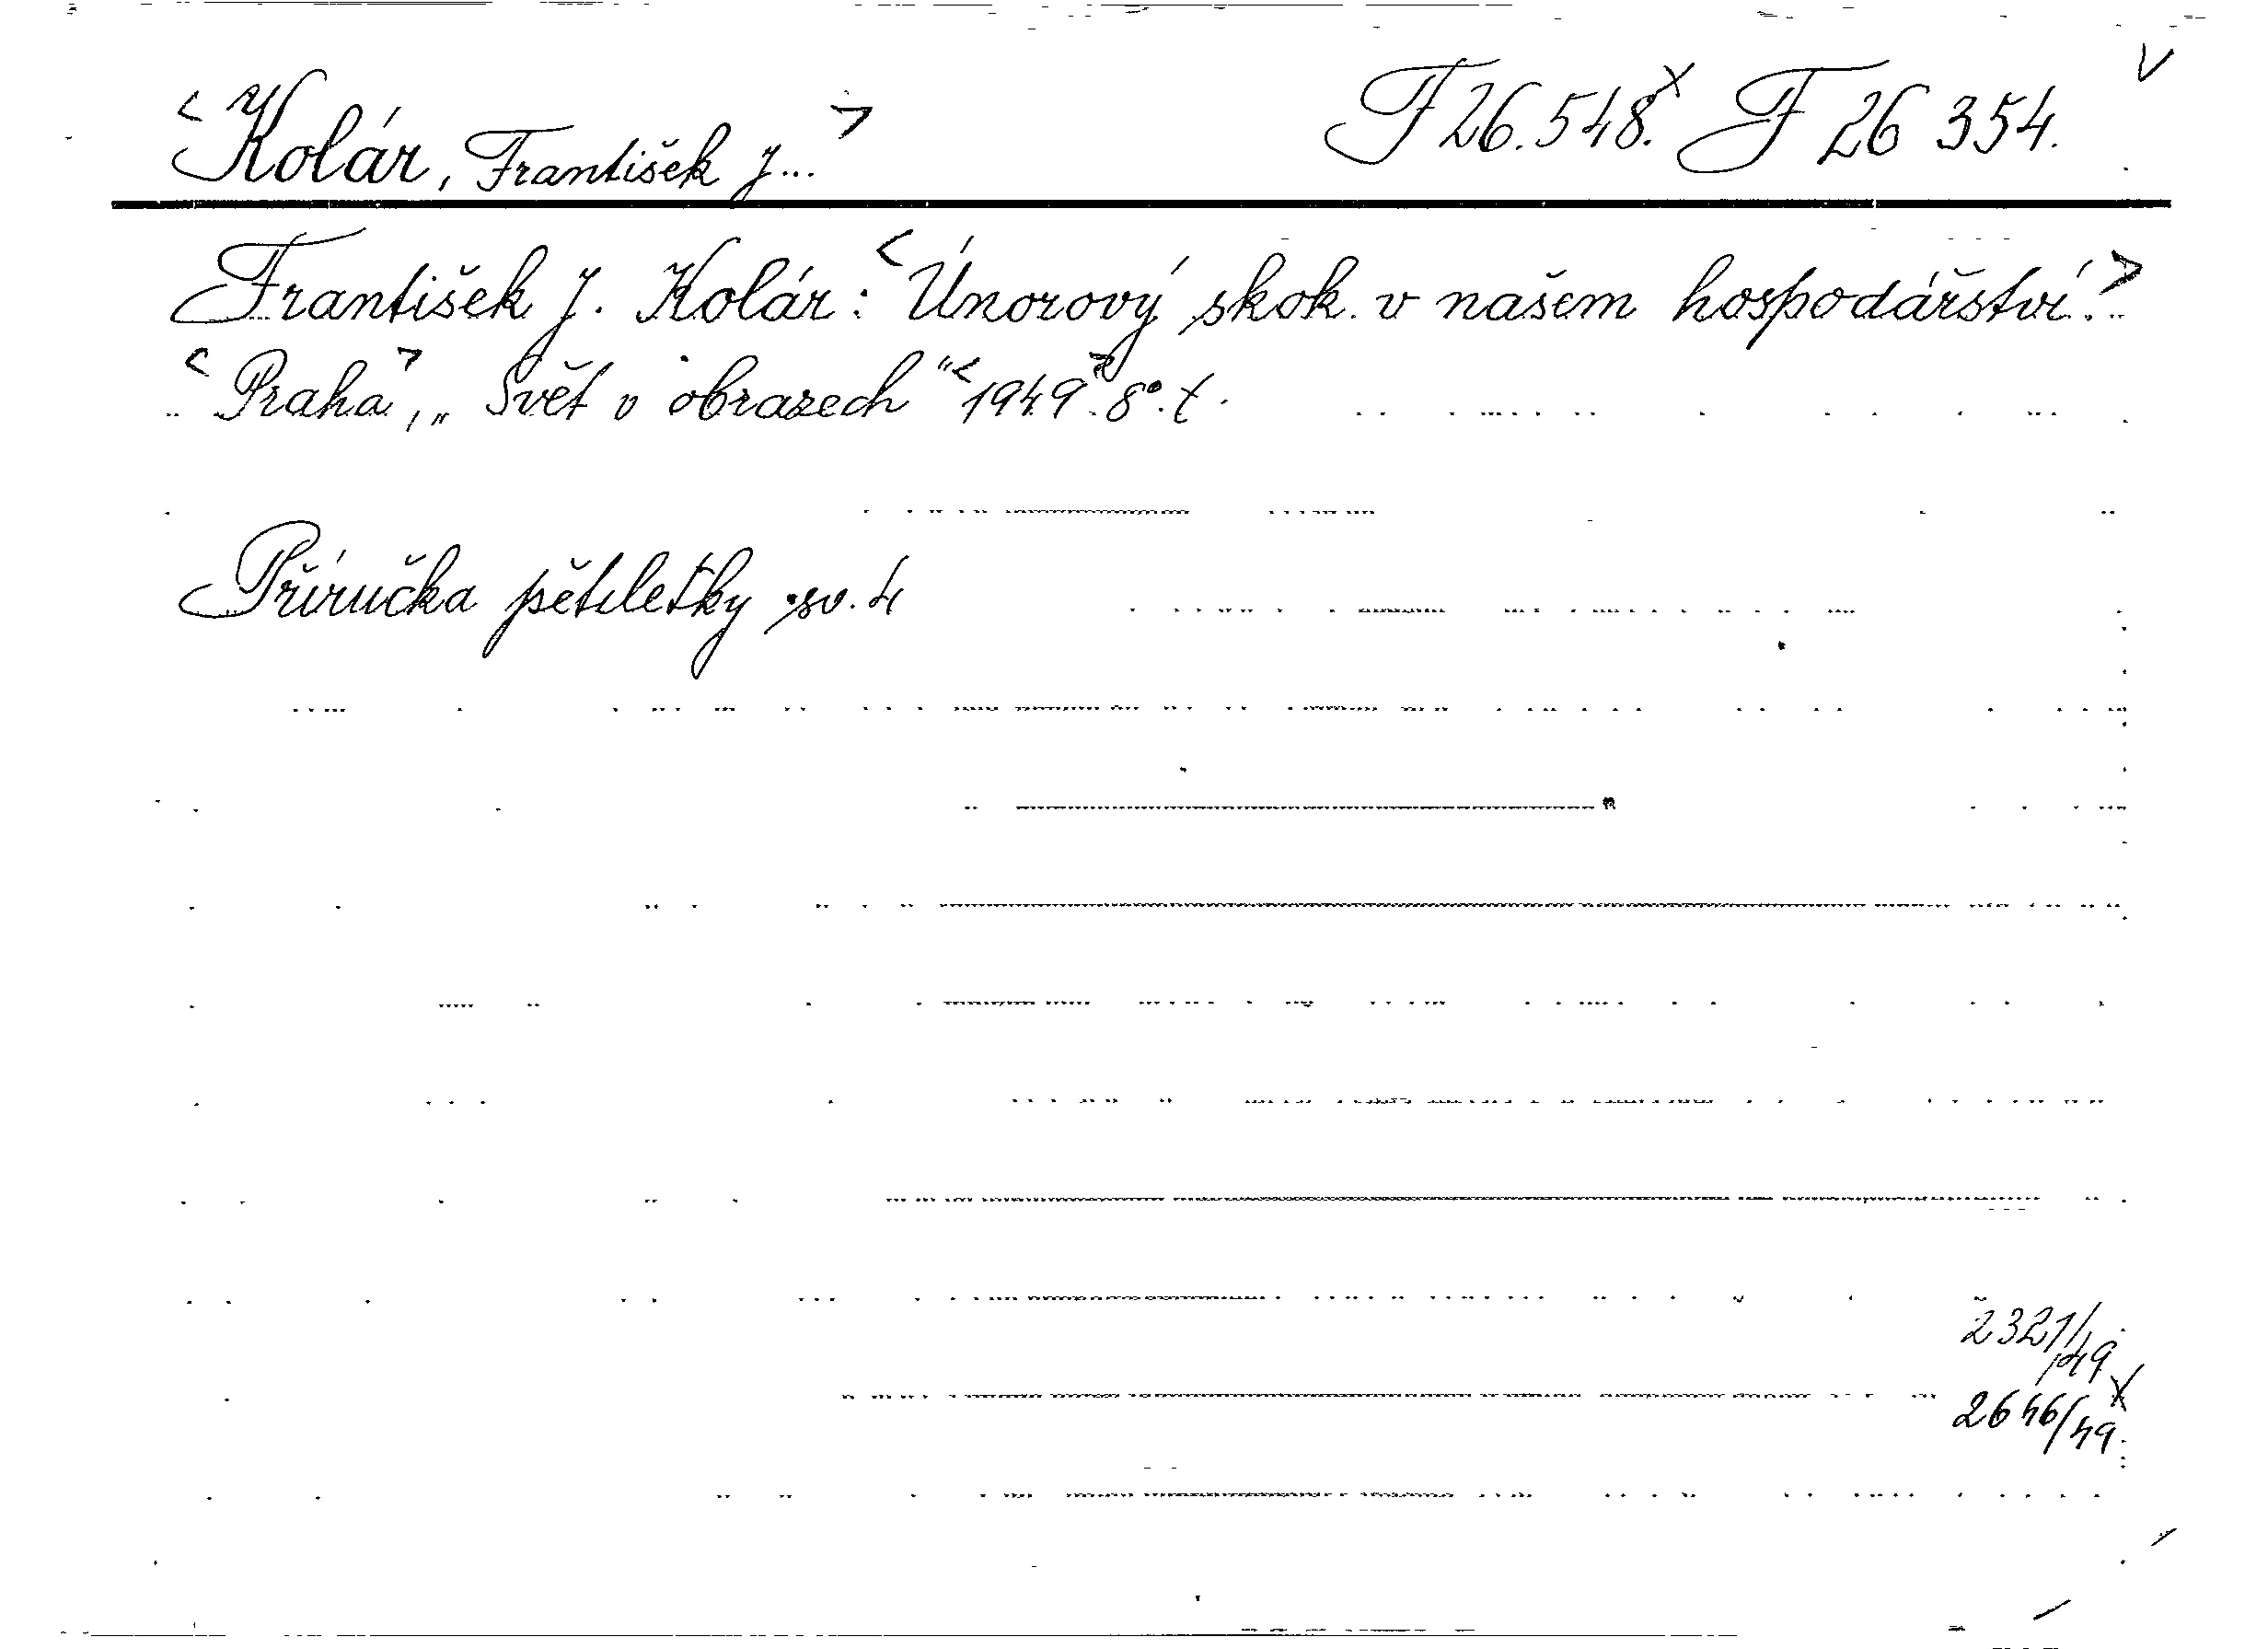 <Kolár, František J...> F 26.548.x F 26 354. V
František J. Kolár: <Únorový skok v našem hospodářství.>
<Praha>, „Svět v obrazech" <1949>. 8°. t.
Příručka pětiletky sv. 4
2321/49
2646/49.x